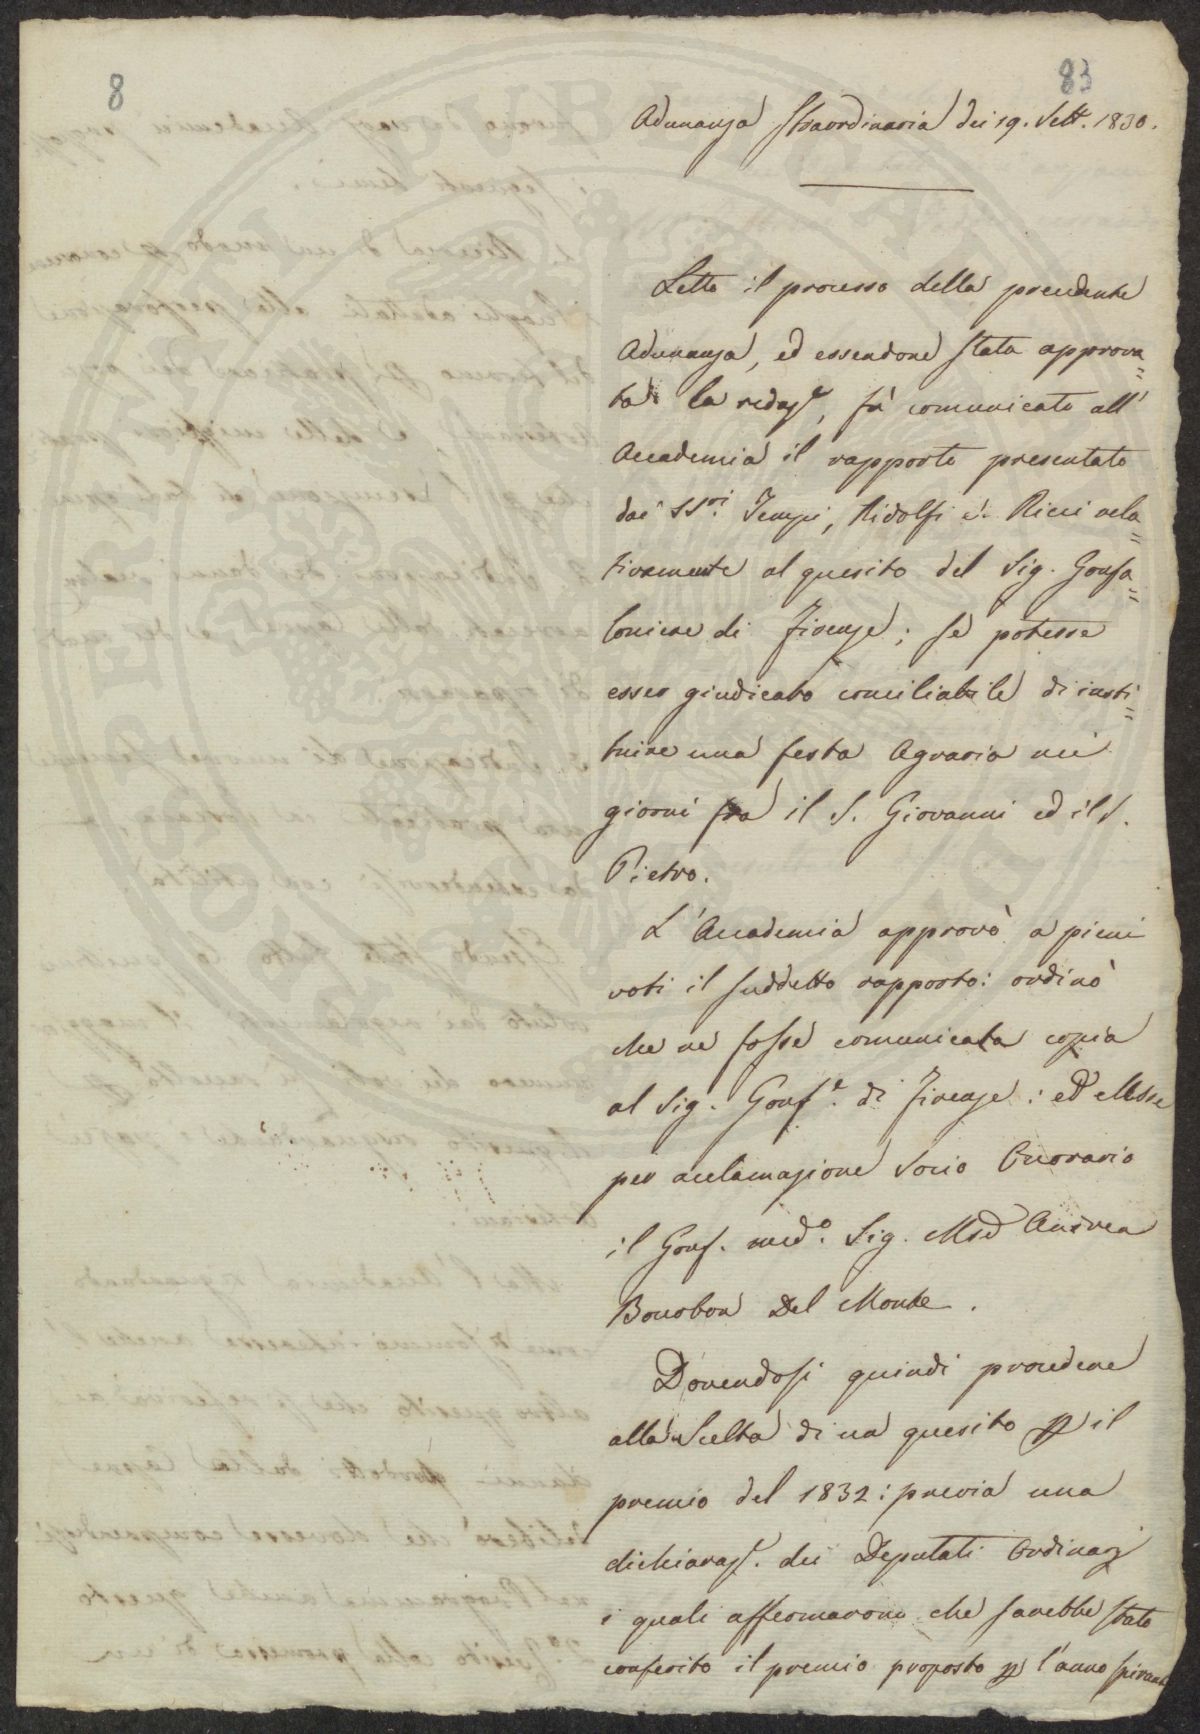 8
83
Adunanza Straordinaria dei 19. Sett. 1830.
Letto il processo della precedente
Adunanza, ed essendone stata approva=
ta la redaz.e, fù comunicato all'
Accademia il rapporto presentato
dai SS.ri Tempi, Ridolfi e Ricci rela=
tivamente al quesito del Sig. Gonfa=
loniere di Firenze; se potesse
esser giudicato conciliabile di insti=
tuire una festa Agraria nei
giorni fra il S. Giovanni ed il S.
Pietro.
L'Accademia approvò a pieni
voti il suddetto rapporto: ordinò
che ne fosse comunicata copia
al Sig. Gonf.e di Firenze: ed elesse
per acclamazione Socio Onorario
il Gonf. med.o Sig. Andrea
Bourbon Del Monte.
Dovendosi quindi procedere
alla Scelta di un quesito p il
premio del 1832: previa una
dichiaraz.e dei Deputati Ordinarj
i quali affermarono che sarebbe stato
conferito il premio proposto p l'anno spirante